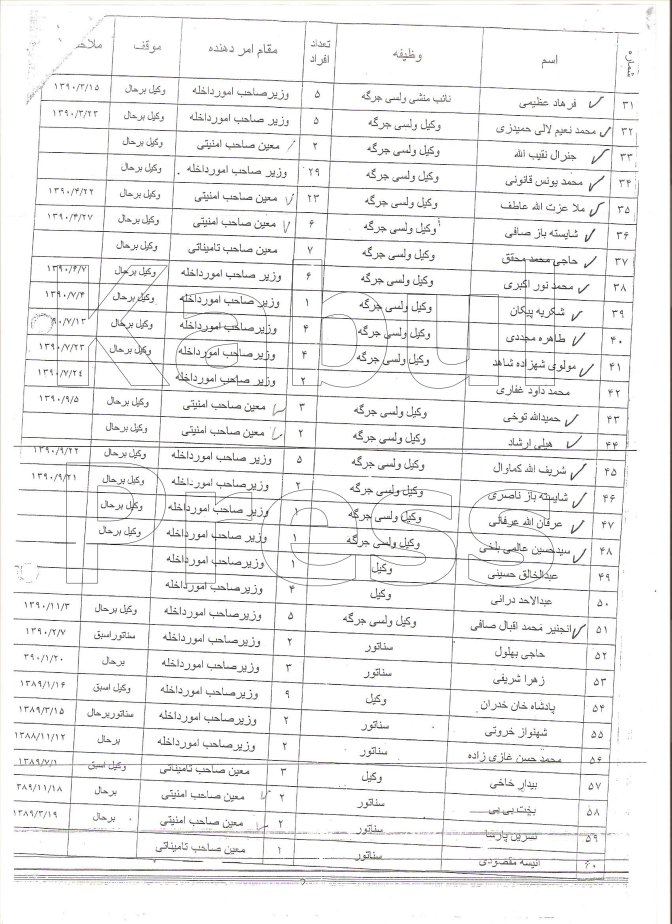 شماره اسم وظیفه تعداد افراد مقام امر دهنده موقف ملاحـ
۳۱ فرهاد عظیمی نائب منشی ولسی جرگه ۵ وزیرصاحب امورداخله وکیل برحال ۱۳۹۰/۳/۱۵
۳۲ محمد نعیم لالی حمیدزی وکیل ولسی جرگه ۵ وزیر صاحب امورداخله وکیل برحال ۱۳۹۰/۳/۲۳
۳۳ جنرال نقیب الله وکیل ولسی جرگه ۲ معین صاحب امنیتی وکیل برحال
۳۴ محمد یونس قانونی وکیل ولسی جرگه ۲۹ وزیر صاحب امورداخله وکیل برحال
۳۵ ملا عزت الله عاطف وکیل ولسی جرگه ۲۳ معین صاحب امنیتی وکیل برحال ۱۳۹۰/۴/۲۲
۳۶ شایسته باز صافی وکیل ولسی جرگه ۶ معین صاحب امنیتی وکیل برحال ۱۳۹۰/۴/۲۷
۳۷ حاجی محمد محقق وکیل ولسی جرگه ۷ معین صاحب تامیناتی وکیل برحال
۳۸ محمد نور اکبری وکیل ولسی جرگه ۶ وزیر صاحب امورداخله وکیل برحال ۱۳۹۰/۶/۷
۳۹ شکریه پیکان وکیل ولسی جرگه ۱ وزیرصاحب امورداخله وکیل برحال ۱۳۹۰/۷/۴
۴۰ طاهره مجددی وکیل ولسی جرگه ۴ وزیرصاحب امورداخله وکیل برحال ۹۰/۷/۱۳
۴۱ مولوی شهزاده شاهد وکیل ولسی جرگه ۴ وزیرصاحب امورداخله وکیل برحال ۱۳۹۰/۷/۲۳
۴۲ محمد داود غفاری ۲ وزیرصاحب امورداخله ۱۳۹۰/۷/۲۴
۴۳ حمیدالله توخی وکیل ولسی جرگه ۳ معین صاحب امنیتی وکیل برحال ۱۳۹۰/۹/۵
۴۴ هیلی ارشاد وکیل ولسی جرگه ۲ معین صاحب امنیتی وکیل برحال
۴۵ شریف الله کماوال وکیل ولسی جرگه ۵ وزیر صاحب امورداخله وکیل برحال ۱۳۹۰/۹/۲۲
۴۶ شایسته باز ناصری وکیل ولسی جرگه ۲ وزیرصاحب امورداخله وکیل برحال ۱۳۹۰/۹/۲۱
۴۷ عرفان الله عرفانی وکیل ولسی جرگه ۱ وزیرصاحب امورداخله وکیل برحال
۴۸ سیدحسین عالمی بلخی وکیل ولسی جرگه ۱ وزیرصاحب امورداخله وکیل برحال
۴۹ عبدالخالق حسینی وکیل ۱ وزیرصاحب امورداخله
۵۰ عبدالاحد درانی وکیل ۴ وزیرصاحب امورداخله
۵۱ انجنیر محمد اقبال صافی وکیل ولسی جرگه ۵ وزیرصاحب امورداخله وکیل برحال ۱۳۹۰/۱۱/۳
۵۲ حاجی بهلول سناتور ۲ وزیرصاحب امورداخله سناتوراسبق ۱۳۹۰/۲/۷
۵۳ زهرا شریفی سناتور ۳ وزیرصاحب امورداخله برحال ۳۹۰/۱/۲۰
۵۴ پادشاه خان خدران وکیل ۹ وزیرصاحب امورداخله وکیل اسبق ۱۳۸۹/۱/۱۶
۵۵ شهنواز خروتی سناتور ۲ وزیرصاحب امورداخله سناتوربرحال ۱۳۸۹/۳/۱۵
۵۶ محمد حسن غازی زاده سناتور ۲ وزیرصاحب امورداخله برحال ۱۳۸۸/۱۱/۱۲
۵۷ بیدار خاخی وکیل ۳ معین صاحب تامیناتی وکیل اسبق ۱۳۸۹/۷/۱
۵۸ بخت بی بی سناتور ۲ معین صاحب امنیتی برحال ۳۸۹/۱۱/۱۸
۵۹ نسرین پارسا سناتور ۲ معین صاحب امنیتی برحال ۱۳۸۹/۳/۱۹
۶۰ انیسه مقصودی سناتور ۱ معین صاحب تامیناتی
Kabul
Press